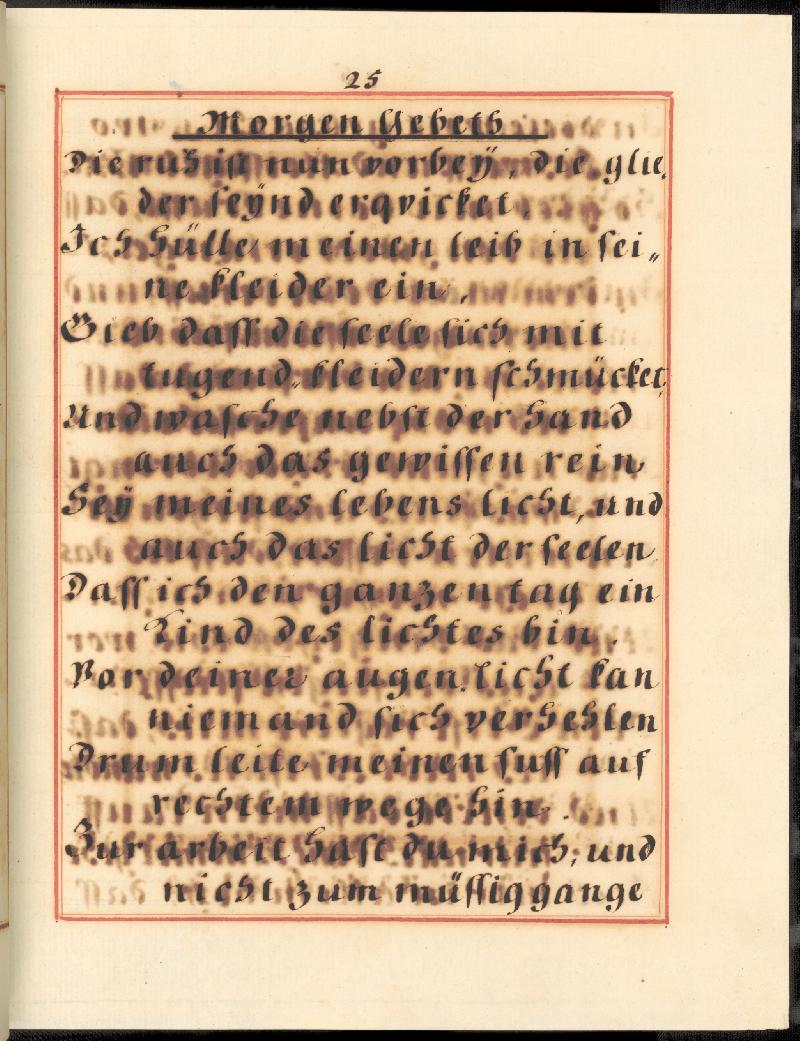 25
Morgen Gebeth
Die ruh ist nun vorbeÿ, die glie,
der seÿnd erqvicket,
Ich hülle meinen leib in sei„
ne kleider ein,
Gieb dass die seele sich mit
tugend„kleidern schmücket,
Und wasche nebst der hand
auch das gewissen rein
Seÿ meines lebens licht, und
auch das licht der seelen
Dass ich den ganzen tag ein
Kind des lichtes bin,
Vor deiner augen licht kan
niemand sich verhehlen
Drum leite meinen fuss auf
rechtem wege hin.
Zur arbeit hast du mich, und
nicht zum müssiggange